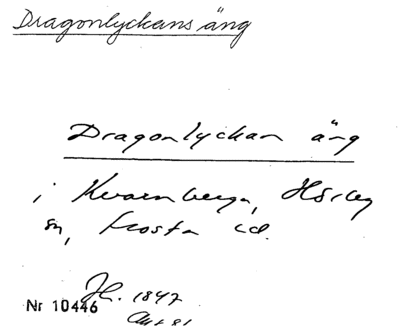 Dragonlyckans äng
Dragonlyckan äng
i Kvarnberga, Hörby
sn, Frosta hd.
Jb. 1847
Nr 10446
Akt 81